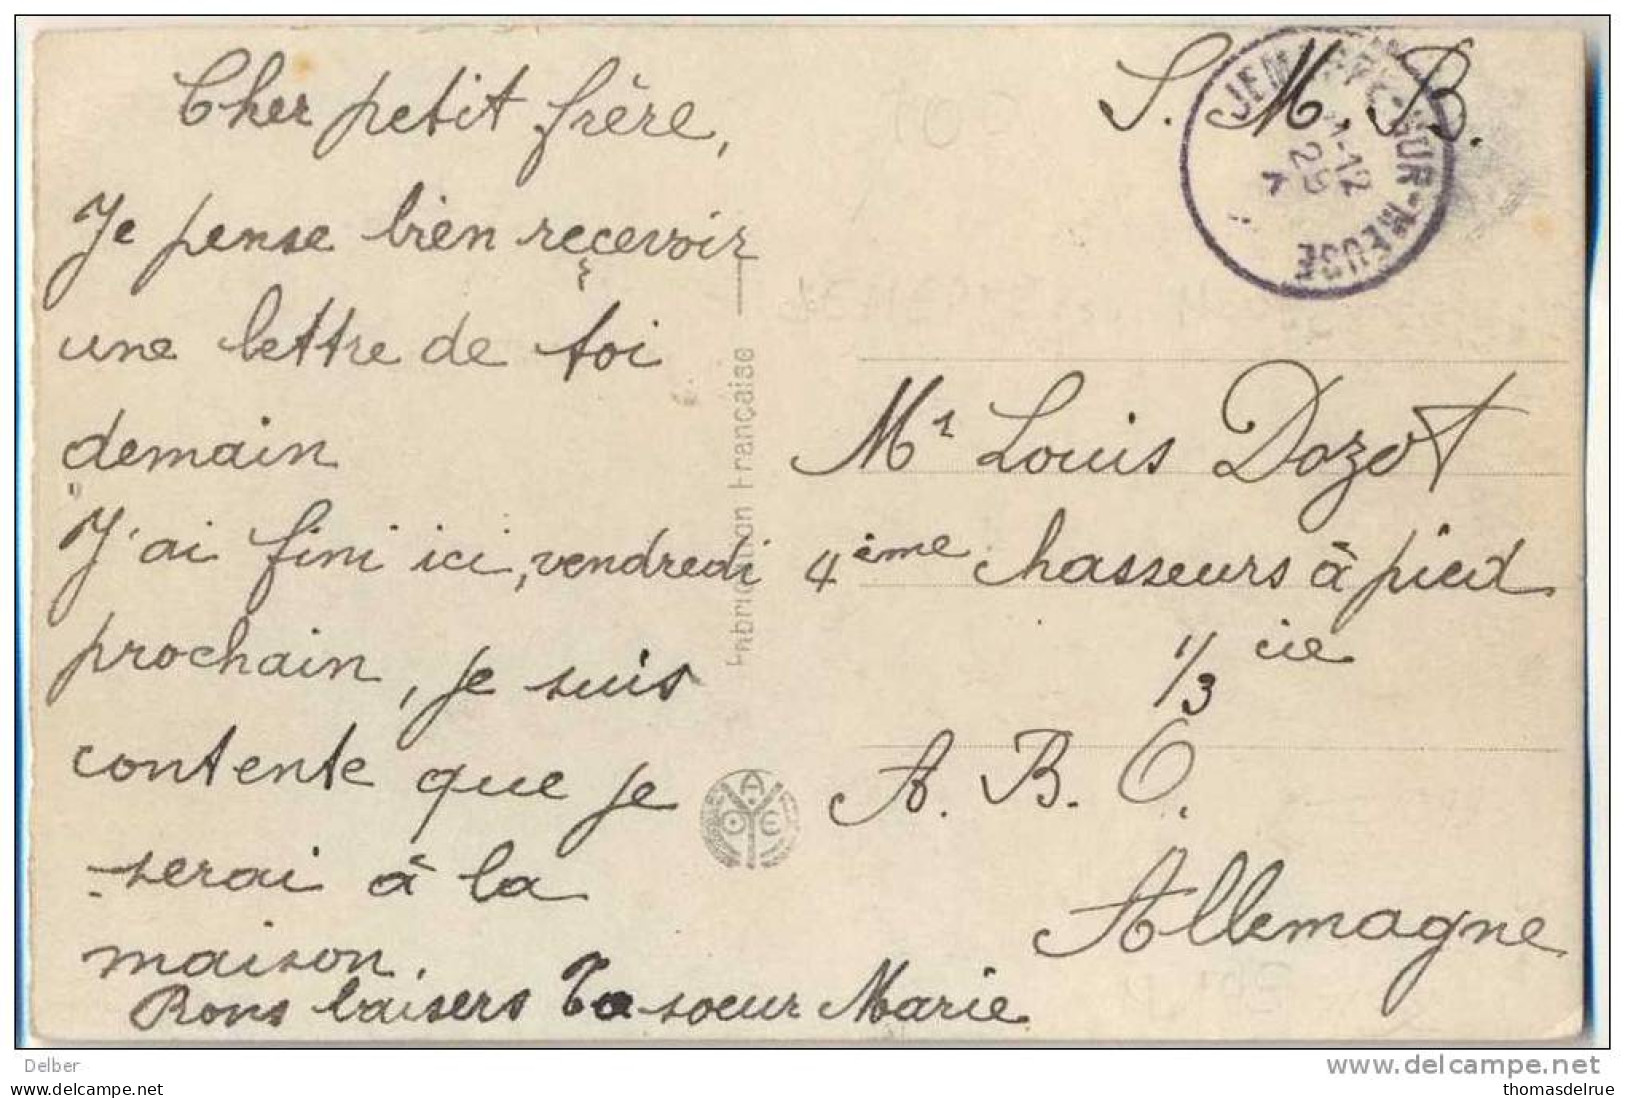 Cher petit frère,
Je pense bien recevoir
une lettre de toi
demain
J'ai fini ici, vendredi
prochain, je suis
contente que je
serai à la
maison.
Bons baisers Ta soeur Marie
Fabrication Française
A
O E
S. M. B.
SUR-MEUSE
Mr Louis Dozot
4ème chasseurs à pied
1/3 cie
A. B. O.
Allemagne
Delber
delcampe.net
thomasdelrue